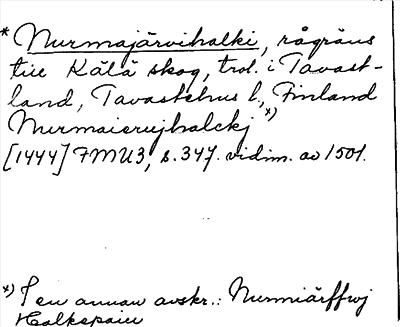 * Nurmajärvihalki, rågräns
till Kälä skog, trol. i Tavast-
land, Tavastehus l., Finland
Nurmaierujhalckj x)
[1444] FMU3, s. 347. vidim. av 1501.
x) I en annan avskr.: Nurmiärffwj
Halkepaiu